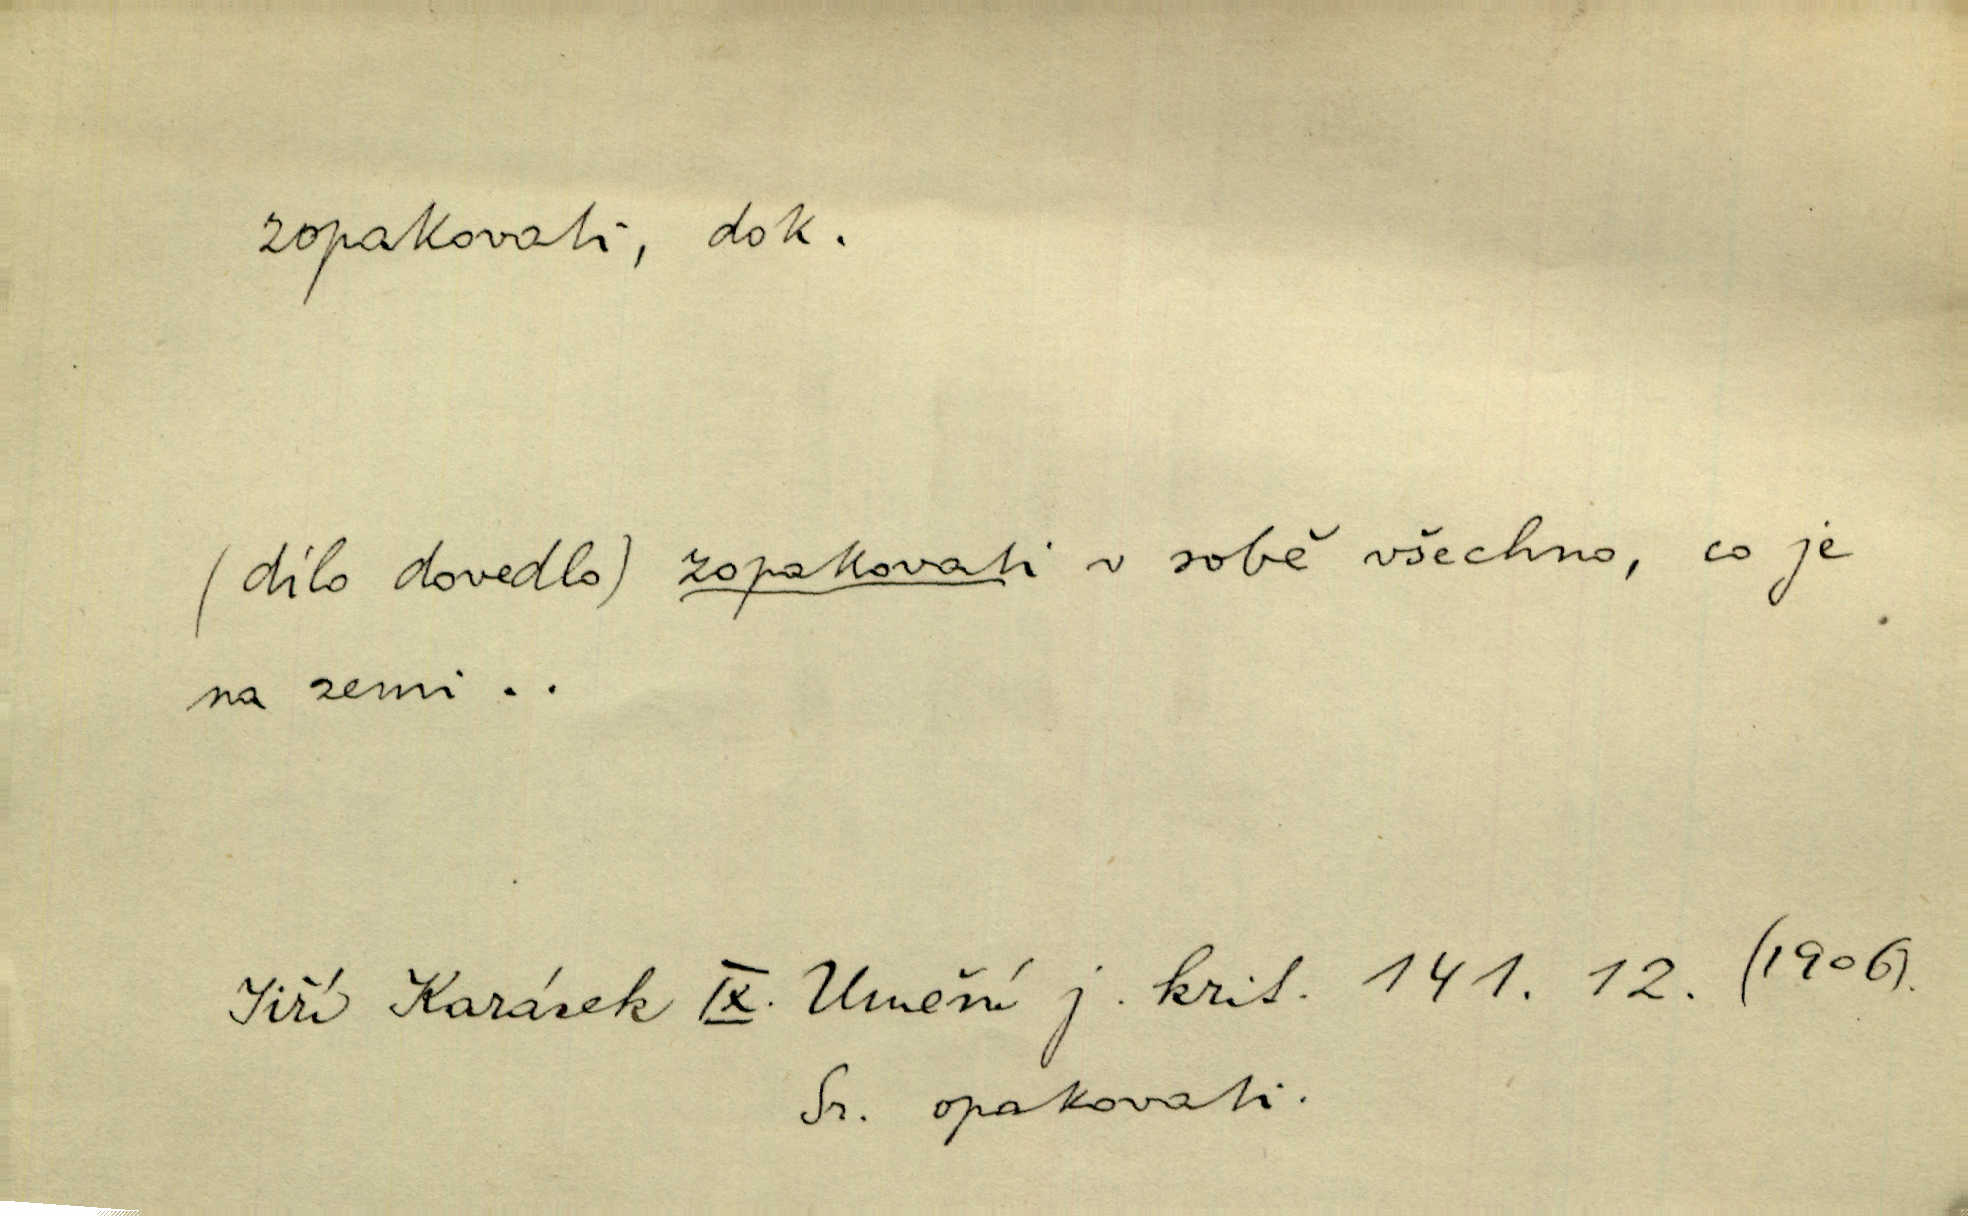 zopakovati, dok.
(dílo dovedlo) zopakovati v sobě všechno, co je
na zemi . .
Jiří Karásek IX. Umění j. krit. 141. 12. (1906).
Sr. opakovati.